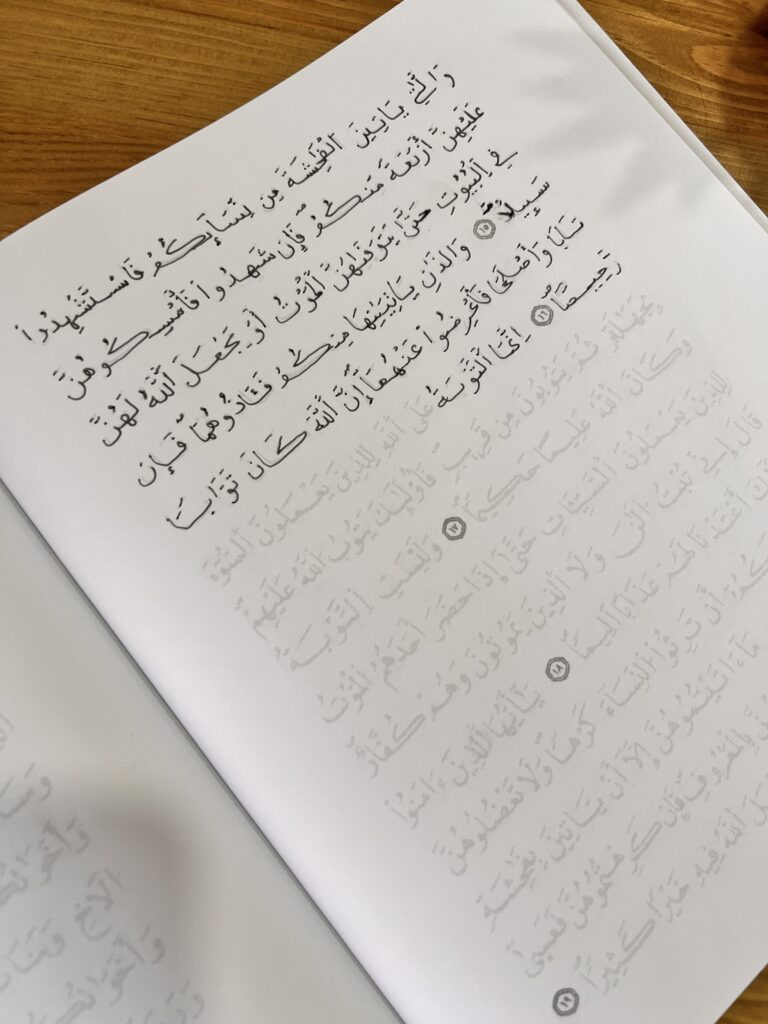 وَالَّٰتِے يَاتِينَ اَلْفَٰحِشَةَ مِن نِّسَآئِكُمْ فَاسْتَشْهِدُواْ
عَلَيْهِنَّ أَرْبَعَةً مِّنكُمْ فَإِن شَهِدُواْ فَأَمْسِكُوهُنَّ
فِے اِلْبُيُوتِ حَتَّىٰ يَتَوَفَّيٰهُنَّ اَلْمَوْتُ أَوْ يَجْعَلَ اَللَّهُ لَهُنَّ
سَبِيلاً ١٥ وَالذَٰنِ يَاتِيَٰنِهَا مِنكُمْ فَـَٔاذُوهُمَا فَإِن
تَابَا وَأَصْلَحَا فَأَعْرِضُواْ عَنْهُمَآ إِنَّ اَللَّهَ كَانَ تَوَّاباٗ
رَّحِيماً ١٦ اِنَّمَا اَلتَّوْبَةُ عَلَى اَللَّهِ لِلذِينَ يَعْمَلُونَ اَلسُّوٓءَ
بِجَهَٰلَةٍ ثُمَّ يَتُوبُونَ مِن قَرِيبٍ فَأُوْلَٰٓئِكَ يَتُوبُ اُللَّهُ عَلَيْهِمْ
وَكَانَ اَللَّهُ عَلِيماً حَكِيماً ١٧ وَلَيْسَتِ اِلتَّوْبَةُ
لِلذِينَ يَعْمَلُونَ اَلسَّيِّـَٔاتِ حَتَّىٰٓ إِذَا حَضَرَ أَحَدَهُمُ اُلْمَوْتُ
قَالَ إِنِّے تُبْتُ اُلَٰنَ وَلَا اَلذِينَ يَمُوتُونَ وَهُمْ كُفَّارٌ
أَعْتَدْنَا لَهُمْ عَذَاباً اَلِيماً ١٨ يَٰٓأَيُّهَا اَلذِينَ ءَامَنُواْ
أَن تَرِثُواْ اُلنِّسَآءَ كَرْهاً وَلَا تَعْضُلُوهُنَّ
مَآ ءَاتَيْتُمُوهُنَّ إِلَّآ أَنْ يَّاتِينَ بِفَٰحِشَةٍ
بِالْمَعْرُوفِ فَإِن كَرِهْتُمُوهُنَّ فَعَسَىٰٓ
اَللَّهُ فِيهِ خَيْراً كَثِيراً ١٩